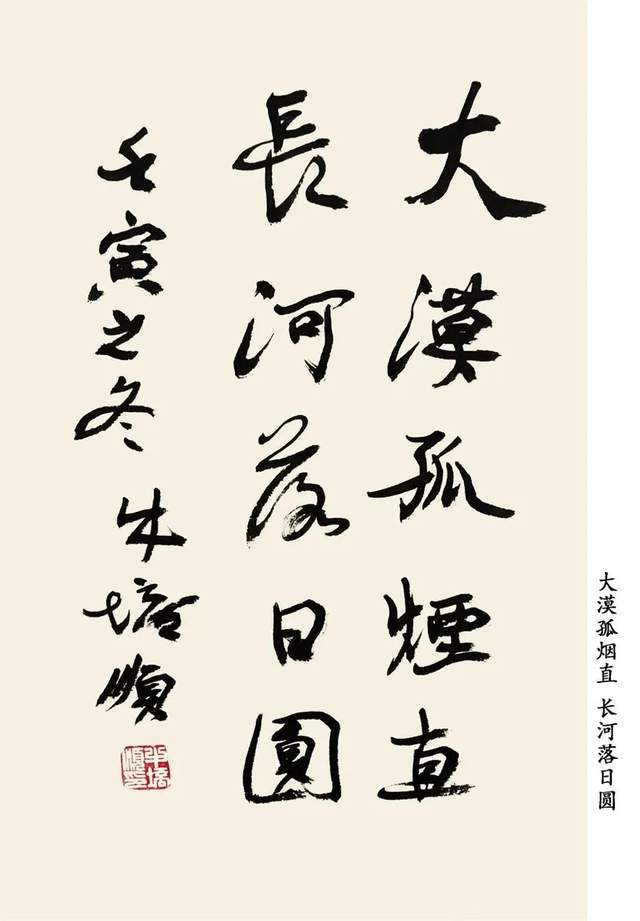 大漠孤煙直
長河落日圓
壬寅之冬 朱培順
大漠孤烟直 长河落日圆